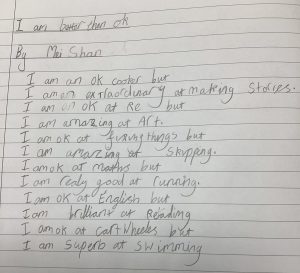 I am better than ok
By Mei Shan
I am an ok cooker but
I am extraordinary at making Stories.
I am an ok at Re but
I am amazing at Art.
I am ok at things but
I am amazing at Skipping.
I am ok at maths but
I am realy good at running.
I am ok at English but
I am brilliant at Reading
I am ok at cartwheeles but
I am Superb at Swimming